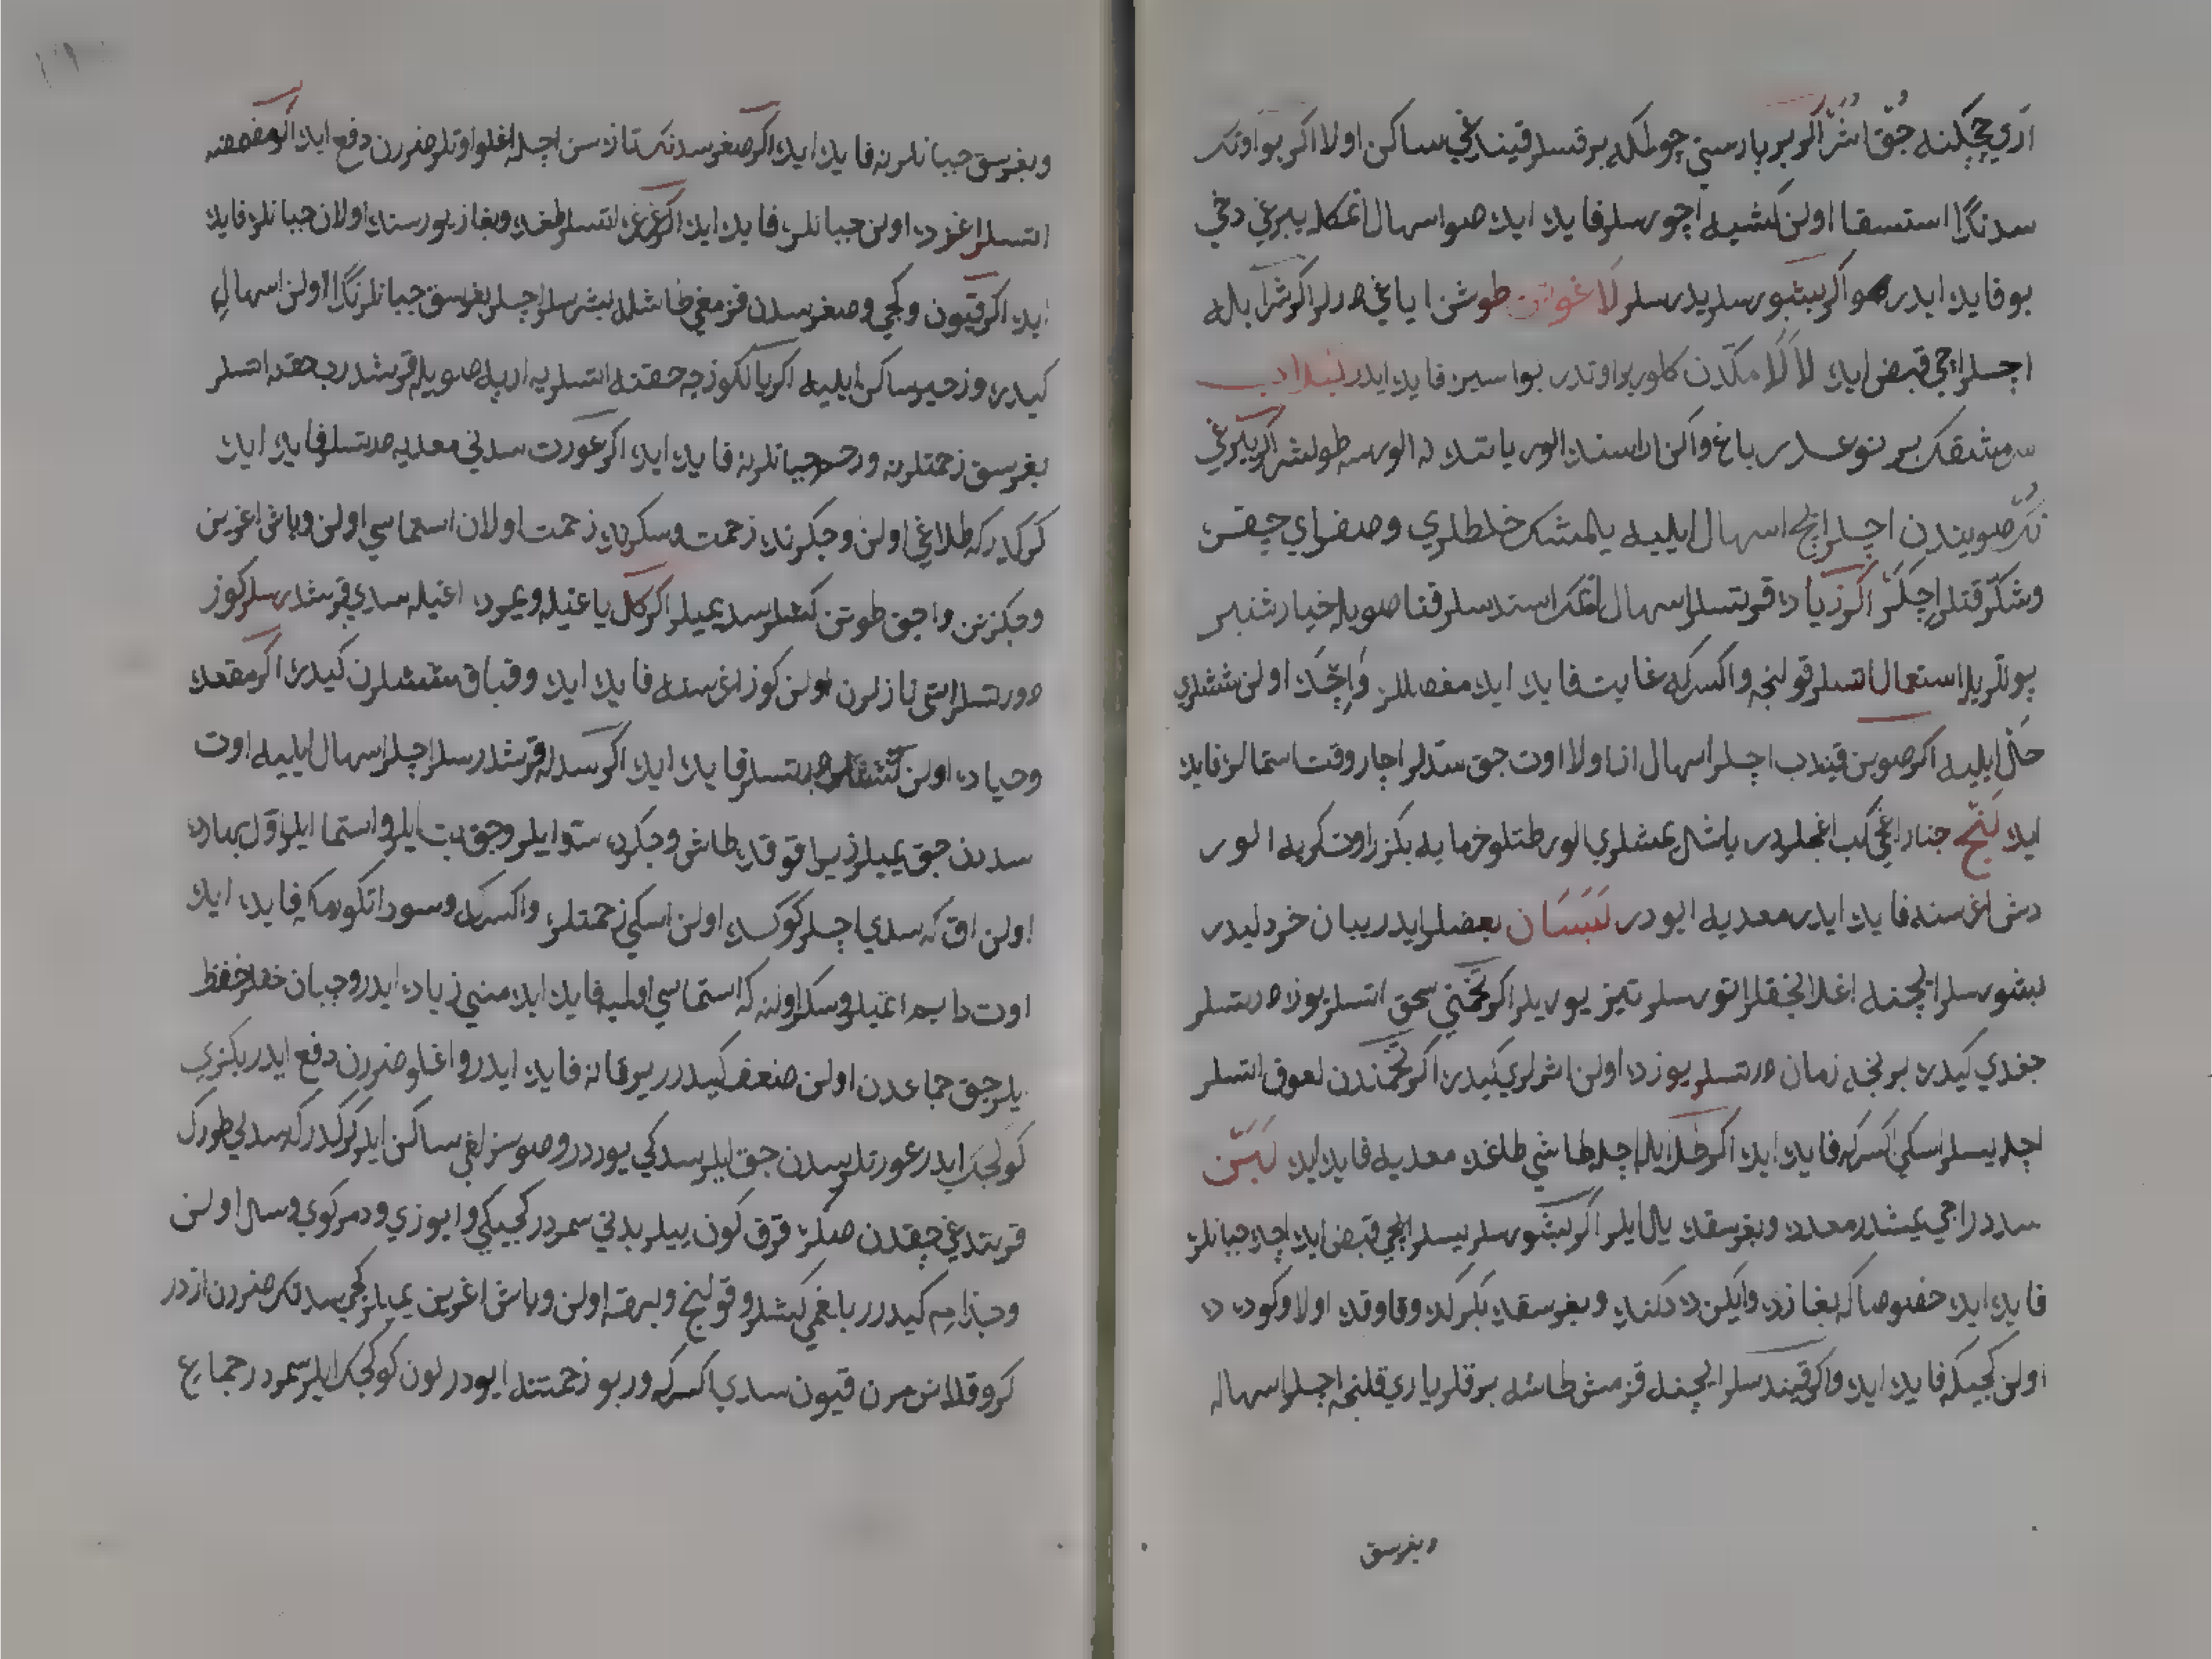 اري چچكنه جوق اشر اكر بر پارسني چولمكله برقسلر قيندغي ساكن اولا اكر بو اوتك
سدنكا استسقا اولن كشيه اچورسلر فايده ايده صو اسهال اتمكله يپرغي دخي
بو فايده ايدر اكر بشورسلر يدرسلر لاغوين طوشن اياغي درلر اكر شرابله
اچسلر اچي قبض ايده لالا مكّدن كلور بر اوتدر بواسيره فايده ايدر لبلاب
سرمشقك بر نوعدر باغ واكن اراسنده الور ياشده نه الورسه طولشر اكر يپرغي
نك صويندن اچسلر ايچ اسهال ايليه يلمشك خلطلري وصفراي چقرن
وشكر قتلر اچكز اكر زياده قرتسلر اسهال اتمك استسلر قنا صويله خيارشنبر
بونلريله استعمال اتسلر قولنجه واكسركه غايت فايده ايده مفصللر واچده اولن ششلري
حل ايليه اكر صوين قيندب اچسلر اسهال انا اولا اوت جق سدلر اچار وقت استمالر فايده
ايده لبخ چنار اغجي كب اغجلردر ياشل يمشلري الور طتلو خرمايه بكزر اوت كريه الور
دش اغرسنه فايده ايدر معديه ايودر لبسان بعضلر ايدر يبان خردليدر
بشورسلر ايچنه اغلانجقلر اتورسلر تيز يوريلر اكر تخمني سحق اتسلر يوزه درتسلر
جغدي كيدره برنجه زمان درتسلر يوزده اولن اثرلري كيدره اكر تخمندن لعوق اتسلر
اچله يسلر اسكي اكسركه فايده ايده اكر خلايله اچله طاشي طلاغه معديه فايده ايده لبن
سددر اجي يمشدر معدده وبغرسقده يال ايلر اكر بشورسلر يسلر ايچي قبض ايده اچده جبانلره
فايده ايده خصوصا كه بغازده وايكنده دكنده وبغرسقده بكركده وقاوقده اولا وكوده ده
اولن كجيكه فايده ايده واكر قيندسلر ايچنه قزمش طاشله برقلر ياري قلنجه اچسلر اسهاله
وبغرسق
وبغرسق جبانلرنه فايده ايده اكر صغر سدنك تازه سن اچسله اغلو اوتلر ضررن دفع ايده اكر مضمضه
اتسلر اغزده اولن جبانلره فايده ايده اكر غرغره اتسلر طمغده وبغاز يورسنده اولان جبانلره فايده
ايده اكر قيون وكجي وصغر سدن قزمغي طاشله بشرسلر اچسلر بغرسق جبانلرنكا اولن اسهالي
كيدره وزحير ساكن ايليه اكر يالكوزجه حقنه اتسلر يه اريه صويله قرشدرب حقنه اتسلر
بغرسق زحمتلرنه ورحم جبانلرنه فايده ايده اكر عورت سدني معديه درتسلر فايده ايده
كركدركه طلاغي اولن وجكرنده زحمت وسكرده زحمت اولان استماسي اولن وباش اغرين
وجكزين واجق طوتن كشلر سد يميلر اكر كل ياغيله ويمرده اغيله سدي قرشدرسلر كوز
درتسلر استي نازلرن اولن كوز اغرسنه فايده ايده وقباق ششلرن كيدره اكر مقعده
وحياده اولن ششلره درتسلر فايده ايده اكر سدله قرشدرسلر اچسلر اسهال ايليه اوت
سدن جق يميلر زيرا قوقده طاش وجكرده ستوا يلر وجق بت ايلر واستما ايلر اول بهارده
اولن اق كه سدي اچسلر كوكسده اولن اسكي زحمتلره واكسركه وسودا تكورمكه فايده ايده
اوت دايم اتميلر وسكر اولنه كه استماسي اوليه فايده ايده منيي زياده ايدر وجبان خفلر حفظ
يلر جق جماعدن اولن ضعف كيدرر يرقانه فايده ايدر واغلو ضررن دفع ايدر بكزي
كولجك ايدر عورتلر سدن جق ايلر سدكي يوردر وصوسزلغي ساكن ايدر كركدركه سدلي طورك
قربتدغي چقدن صكره قرق كون ييلر بدني سمردر كجيكي وايوزي ودمركوي وسل اولن
وجذامه كيدرر بلغمي كشلر وقولنج وبرصه اولن وباش اغرين يميلر كجي سدنك ضررن ازدر
كروقلانن مرن قيون سدي اكسركه وربو زحمتنه ايودر لون كولجك ايلر سمردر جماع